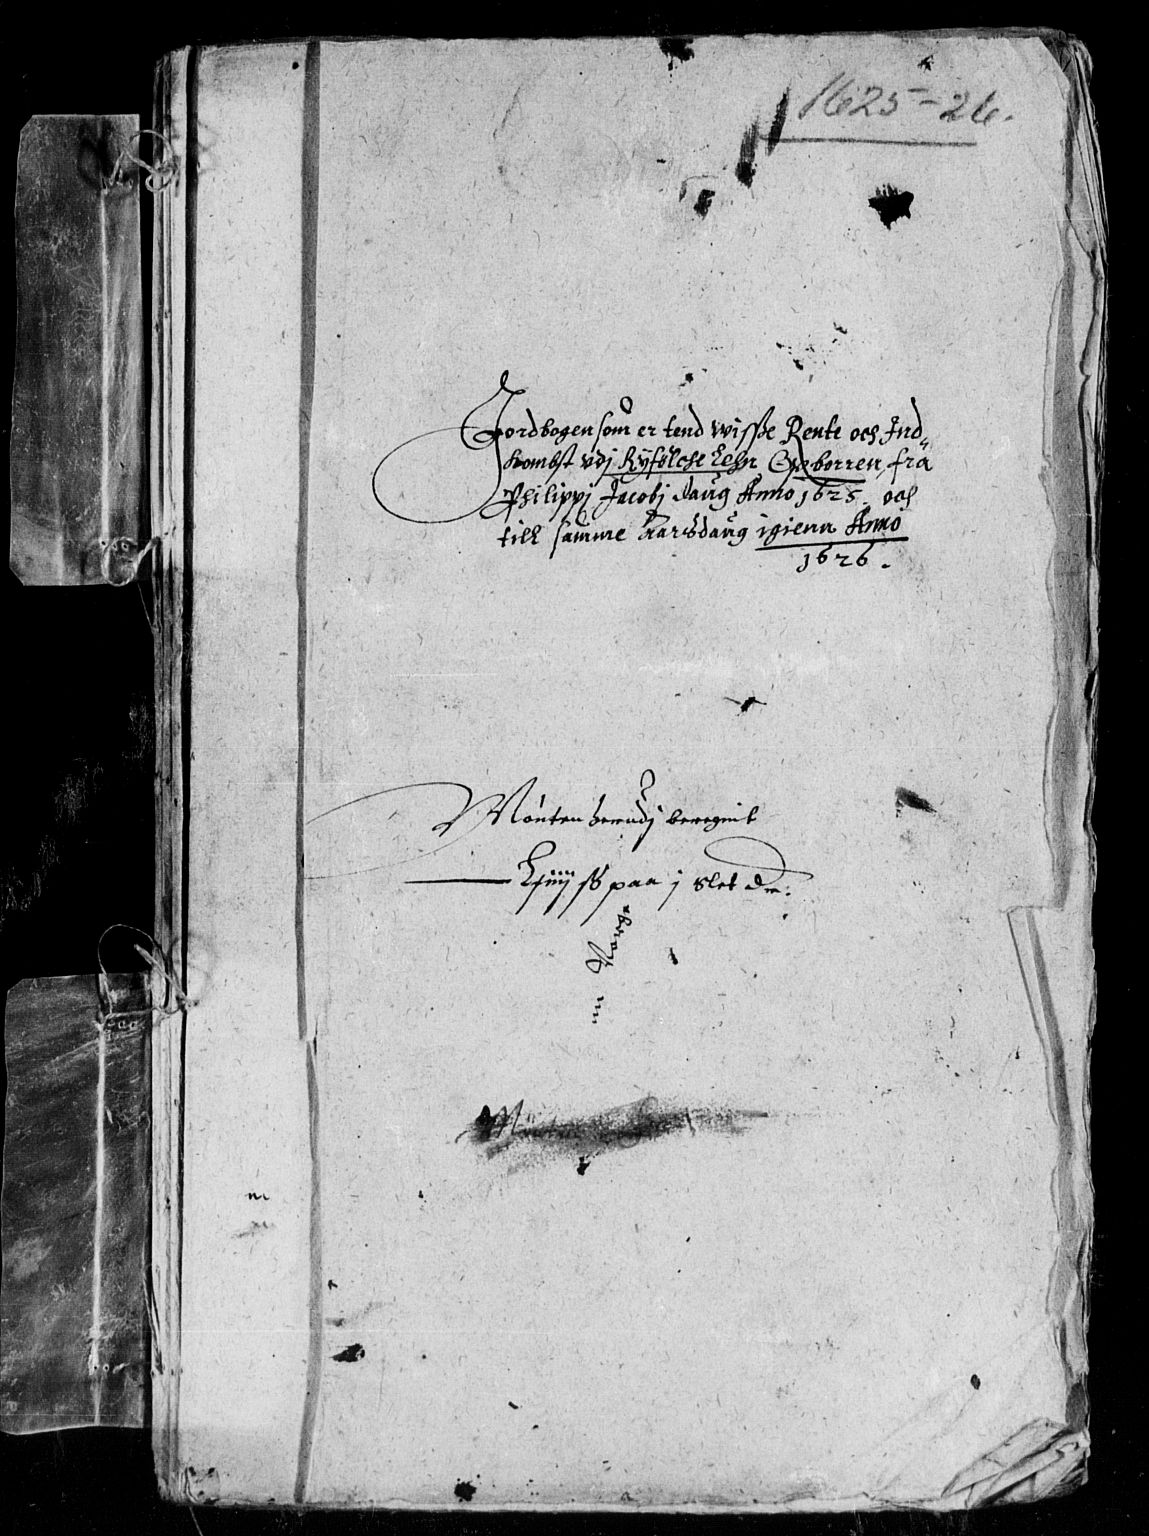 1625-26.
Jordbogen som er tend Wisse Rente och Ind„
kombst udj Ryfölche Lehn Opborren, fra
Philippj Jacobj daug Anno 1625. och
till samme Aarsdaug igienn Anno
1626.
Mönten herudj beregnit
paa j Slet dr.